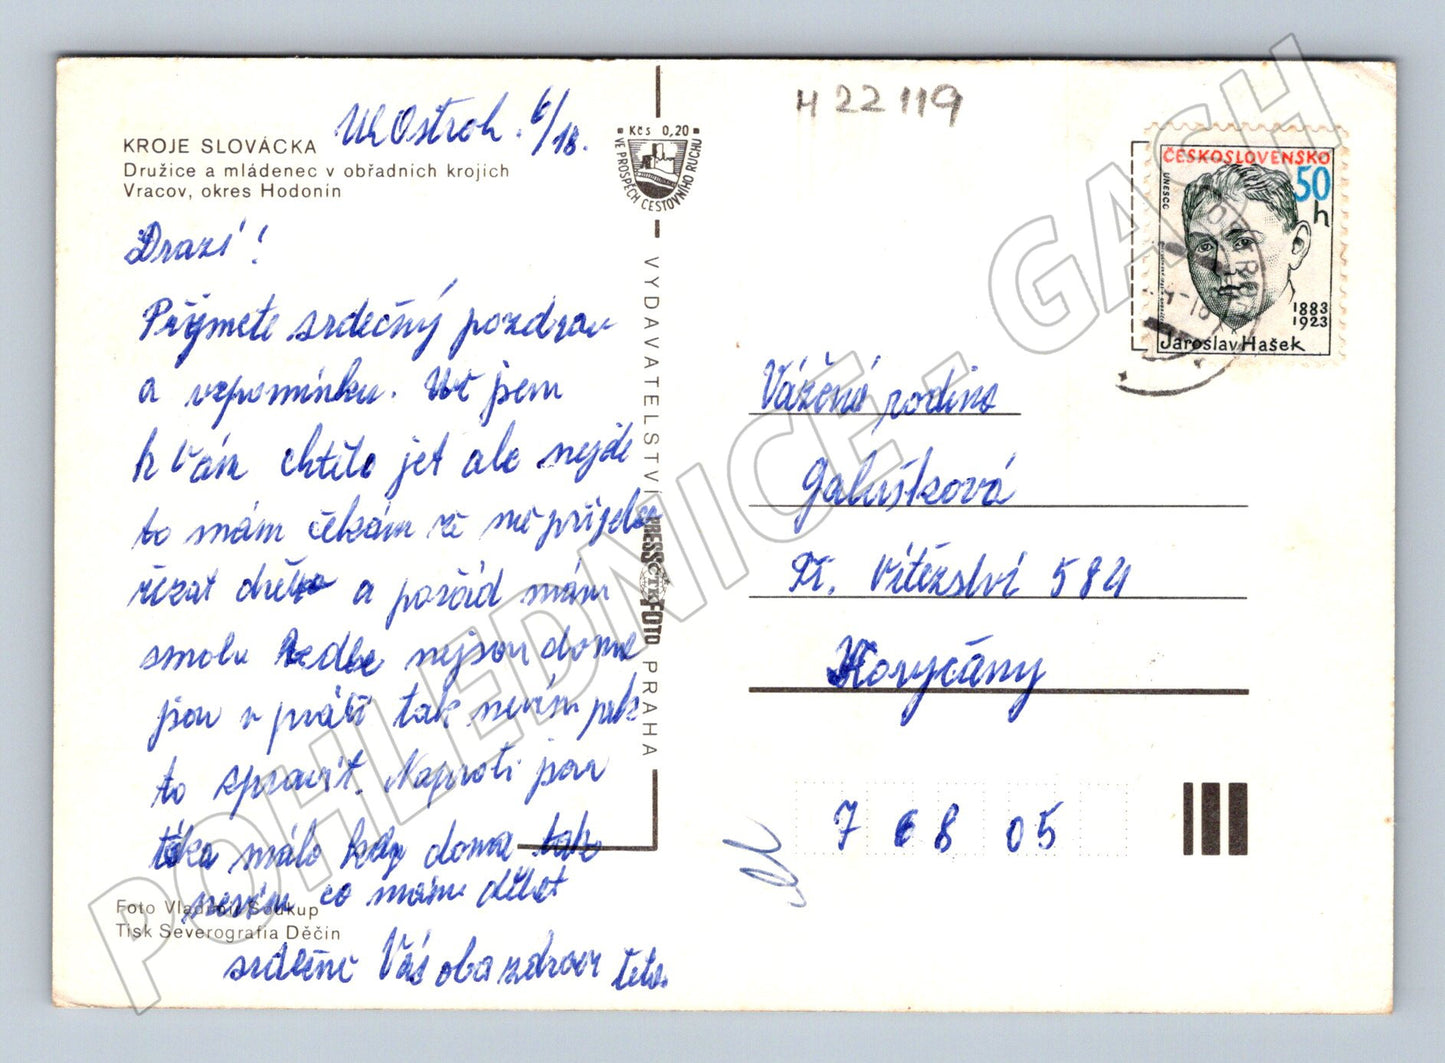 Uh Ostroh. 6/18.
KROJE SLOVÁCKA
Družice a mládenec v obřadních krojích
Vracov, okres Hodonín
Drazí!
Přijmete srdečný pozdrav
a vzpomínku. Už jsem
k Vám chtěla jet ale nejde
to mám čekám že mě přijedou
řezat dřevo a pořád mám
smolu nejsou doma
jsou v práci tak nevím jak
to spravit. Naproti jsou
také málo kdy doma tak
nevím co mám dělat
Foto Vladimír Soukup
Tisk Severografia Děčín
srdečně Vás oba zdraví teta.
Kčs 0,20
VE PROSPĚCH CESTOVNÍHO RUCHU
VYDAVATELSTVÍ PRESSFOTO PRAHA
ČTK
H 22 119
ČESKOSLOVENSKO
50 h
UNESCO
1883
1923
Jaroslav Hašek
Vážená rodina
Galušková
Vítězství 584
Koryčany
768 05
POHLEDNICE - GASH